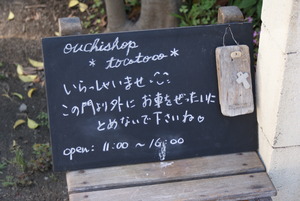 ouchishop
* tocotoco *
いらっしゃいませ・・
この門より外に お車をぜったいに
とめないで下さいね
open: 11:00 〜 16:00